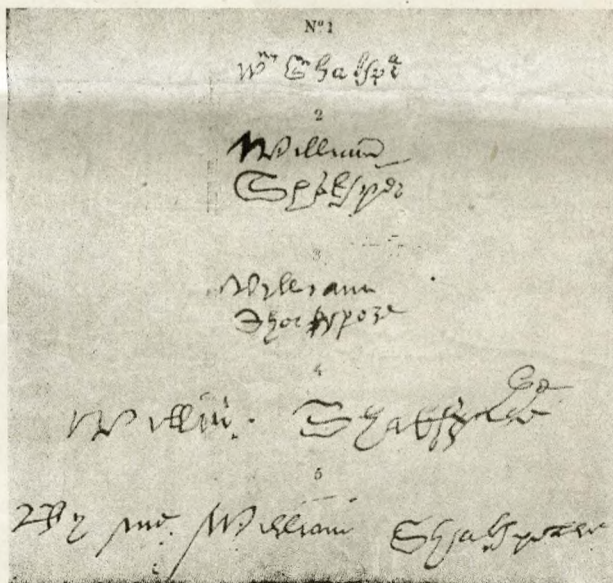 Nº 1
Wᵐ Shakspᵉ
2
William
Shaksper
3
William
Shakspere
4
Willm Shakspere
5
By me William Shakspeare